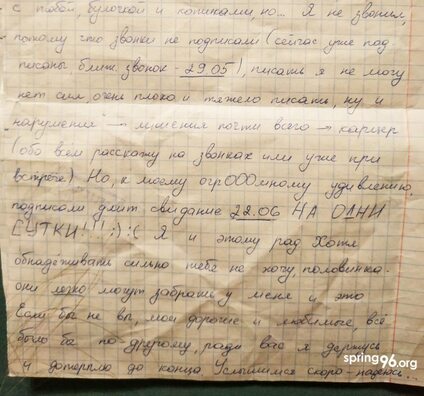 с тобой, булочкой и котиками, но... Я не звонил,
потому что звонки не подписали (сейчас уже под
писаны ближ. звонок - 29.05!), писать я не могу
нет сил, очень плохо и тяжело писать, ну и
нарушения → лишения почти всего → карцер
(обо всём расскажу на звонках или уже при
встрече) Но, к моему огрОООмному удивлению,
подписали длит. свидание 22.06 НА ОДНИ
СУТКИ!!! :) :( Я и этому рад Хотя
обнадёживать сильно тебя не хочу, половинка.
они легко могут забрать у меня и это
Если бы не вы, мои дорогие и любимые, всё
было бы по-другому, ради вас я держусь
и дотерплю до конца Услышимся скоро - надеюсь...
spring96.org